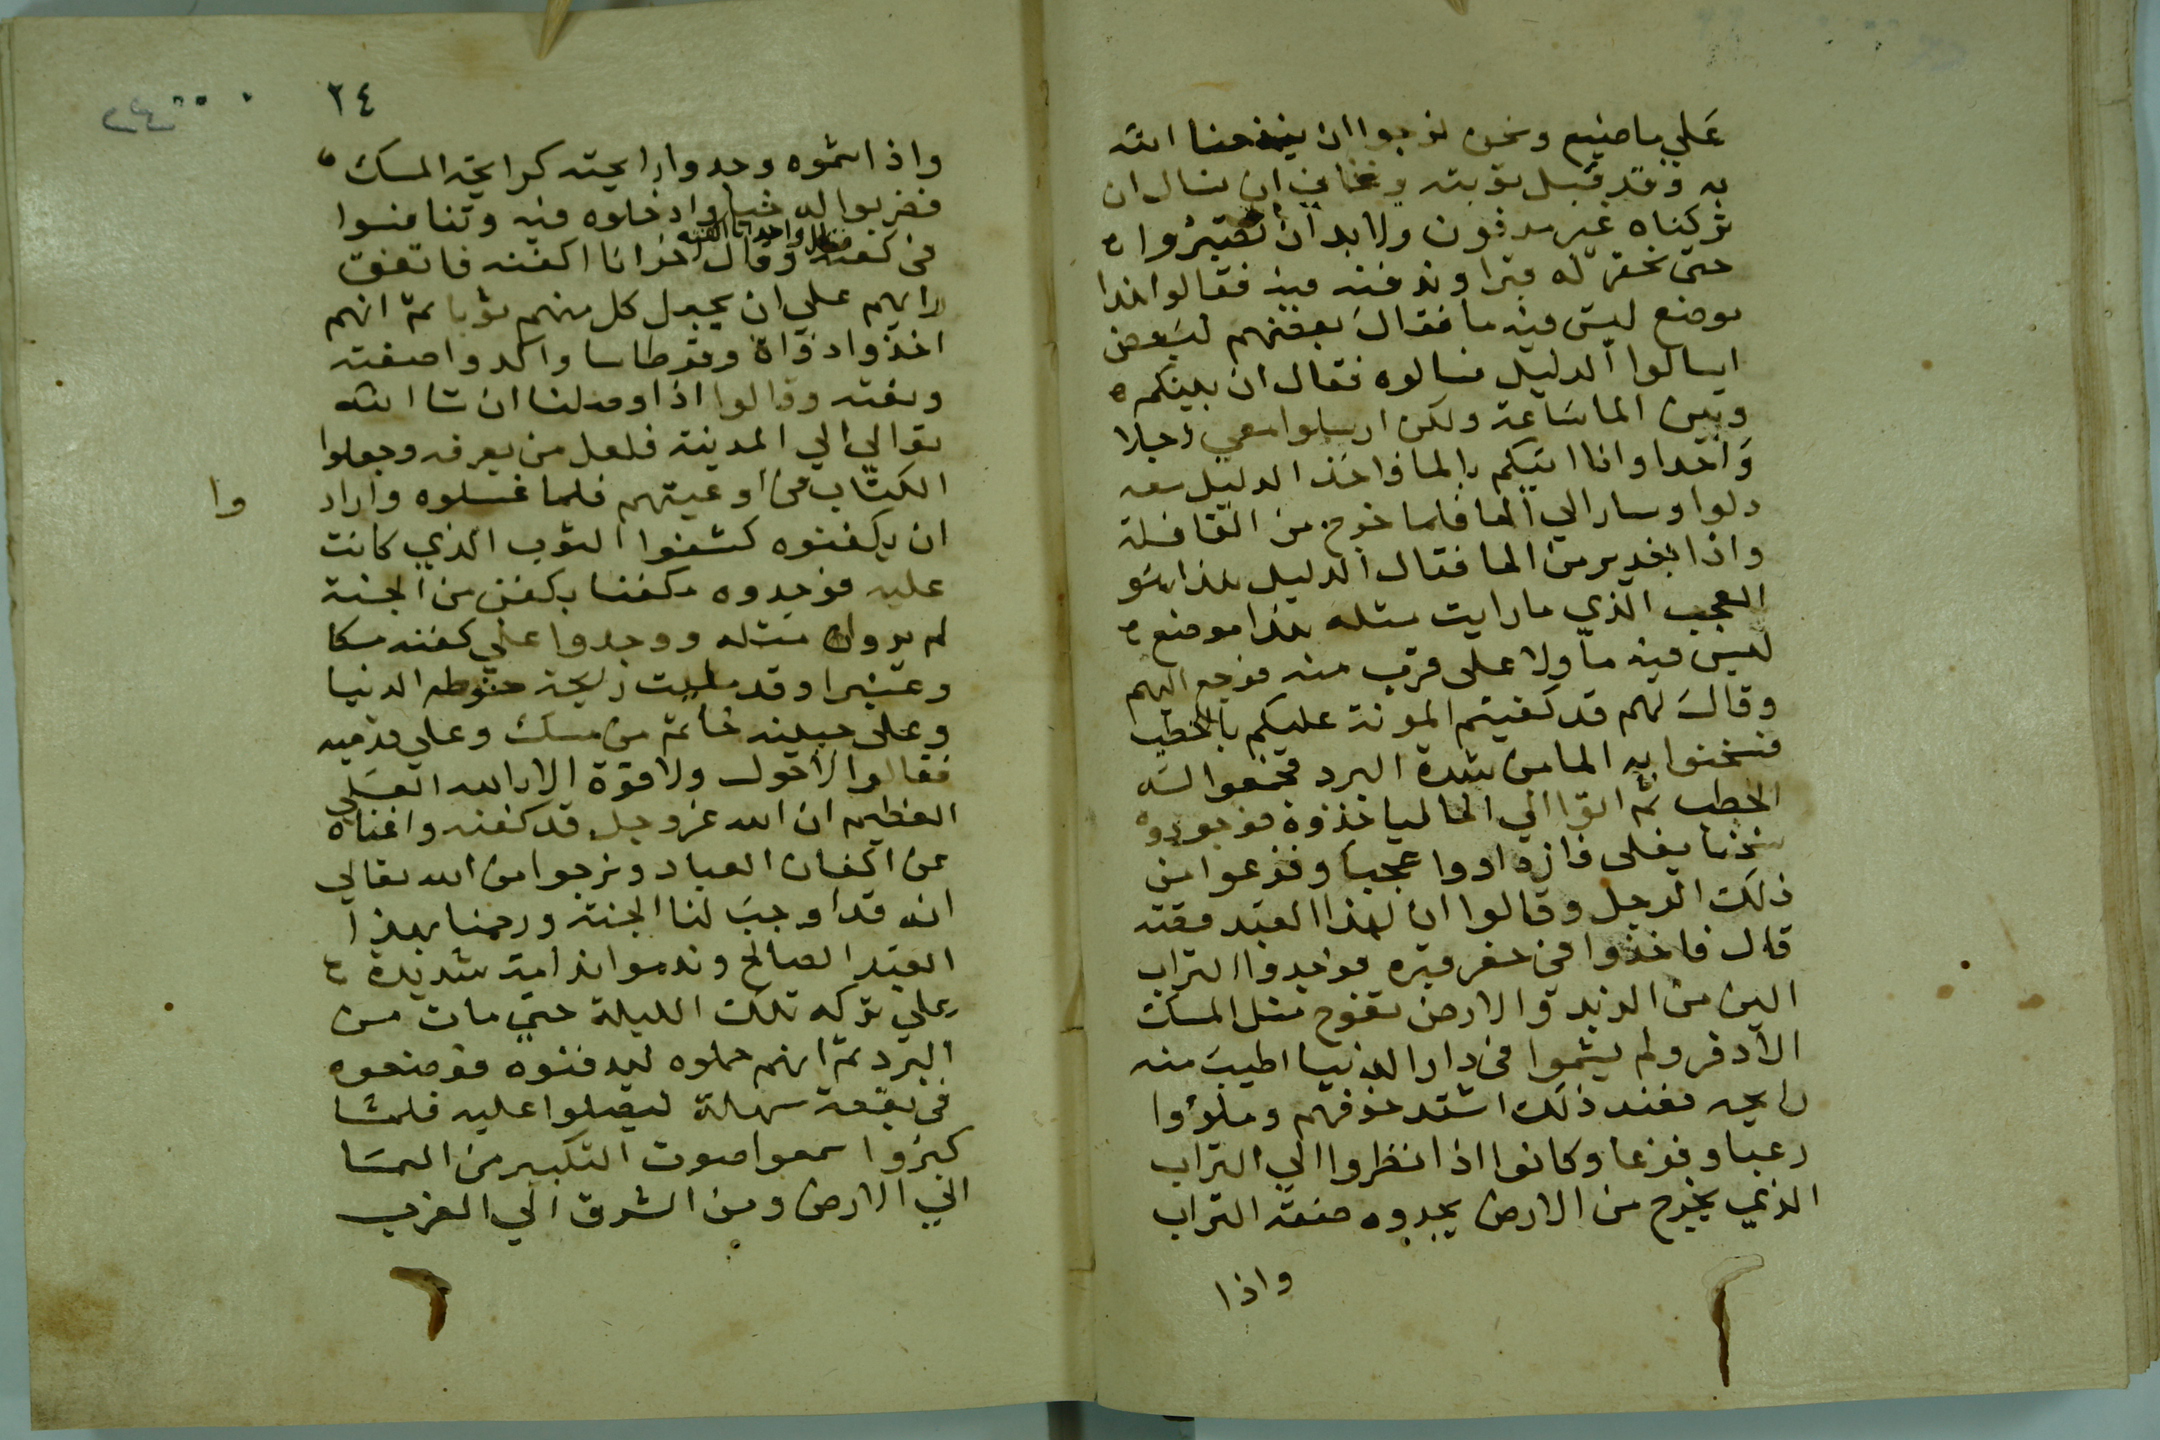 علي ما صنع ونحن نرجوا ان ينفعنا الله
به وقد قبل توبته ونخاف ان نسال ان
تركناه غير مدفون ولا بد ان تصبروا
حتي نحفر له قبرا وندفنه فيه فقالوا هذا
موضع ليس فيه ما فقال بعضهم لبعض
اسالوا الدليل فسالوه فقال ان بينكم
وبين الما ساعة ولكن ارسلوا معي رجلا
واحدا وانا اتيكم بالما فاخذ الدليل معه
دلوا وسار الي الما فلما خرج من القافلة
واذا بغدير من الما فقال الدليل هذا هو
العجب الذي ما رايت مثله هذا موضع
ليس فيه ما ولا على قرب منه فرجع اليهم
وقال لهم قد كفيتم المونة عليكم بالحطب
فسخنوا به الما من شدة البرد فجمعوا له
الحطب ثم اتوا الي الما لياخذوه فوجدوه
سخنا يغلى فازدادوا عجبا وفزعوا من
ذلك الرجل وقالوا ان لهذا العبد قصة
قال فاخذوا في حفر قبره فوجدوا التراب
الين من الزبد والارض تفوح مثل المسك
الادفر ولم يشموا في دار الدنيا اطيب منه
رايحه فعند ذلك اشتد خوفهم وملؤوا
رعبا وفزعا وكانوا اذا نظروا الي التراب
الذي يخرج من الارض يجدوه صفة التراب
واذا
٢٤
واذا شموه وجدوا رايحته كرايحة المسك
فضربوا له خبا وادخلوه فيه وتنافسوا
في كفنه فقال واحد انا اكفنه وقال اخر انا اكفنه فاتفق
رايهم علي ان يجعل كل منهم ثوبا ثم انهم
اخذوا دواة وقرطاسا واكدوا صفته
ونعته وقالوا اذا وصلنا ان شا الله
تعالي الي المدينة فلعل من يعرفه وجعلوا
الكتاب في اوعيتهم فلما غسلوه واراد
وا
ان يكفنوه كشفوا الثوب الذي كانت
عليه فوجدوه مكفنا بكفن من الجنة
لم يروا مثله ووجدوا علي كفنه مسكا
وعنبرا وقد ملات ريحة حنوطه الدنيا
وعلى جبينه خاتم من مسك وعلي قدميه
فقالوا لا حول ولا قوة الا بالله العلي
العظيم ان الله عز وجل قد كفنه واغناه
عن اكفان العباد ونرجوا من الله تعالي
انه قد اوجب لنا الجنة ورحمنا بهذا
العبد الصالح وندموا ندامة شديدة
علي تركه تلك الليلة حتي مات من
البرد ثم انهم حملوه ليدفنوه فوضعوه
في بقعة سهلة ليصلوا عليه فلما
كبروا سمعوا صوت التكبير من السما
الي الارض ومن الشرق الي الغرب